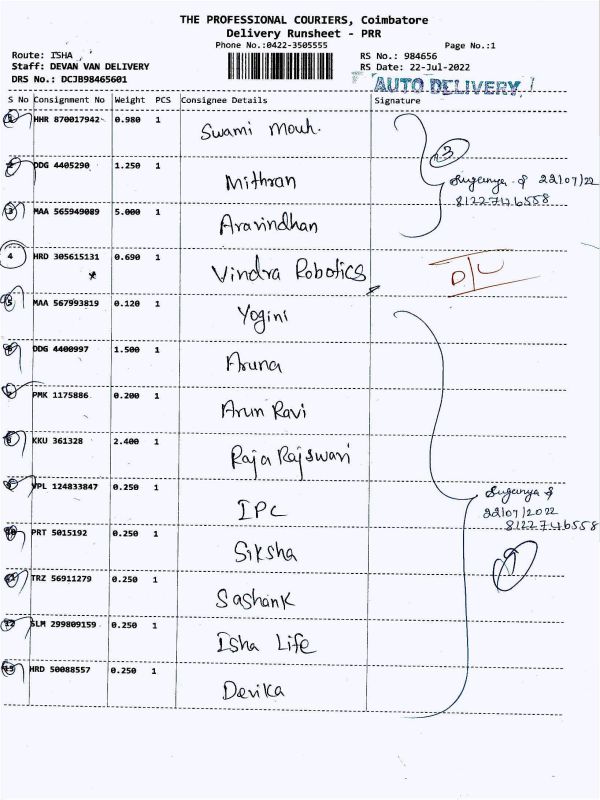 THE PROFESSIONAL COURIERS, Coimbatore
Delivery Runsheet - PRR
Phone No.:0422-3505555
Page No.:1
Route: ISHA
RS No.: 984656
Staff: DEVAN VAN DELIVERY
RS Date: 22-Jul-2022
DRS No.: DCJB98465601
AUTO DELIVERY
S No Consignment No Weight PCS Consignee Details Signature
1 HHR 870017942 0.980 1 Swami Mouh.
3
2 DDG 4405290 1.250 1 Mithran
Suganya 22/07/22
8122746558
3 MAA 565949089 5.000 1 Aravindhan
4 HRD 305615131 0.690 1 Vindra Robotics D/L
5 MAA 567993819 0.120 1 Yogini
6 DDG 4400997 1.500 1 Aruna
7 PMK 1175886 0.200 1 Arun Ravi
8 KKU 361328 2.400 1 Raja Rajswari
9 VPL 124833847 0.250 1 IPC
Suganya
22/07/2022
8122746558
10 PRT 5015192 0.250 1 Siksha
9
11 TRZ 56911279 0.250 1 Sashank
12 SLM 299809159 0.250 1 Isha Life
13 HRD 50088557 0.250 1 Devika